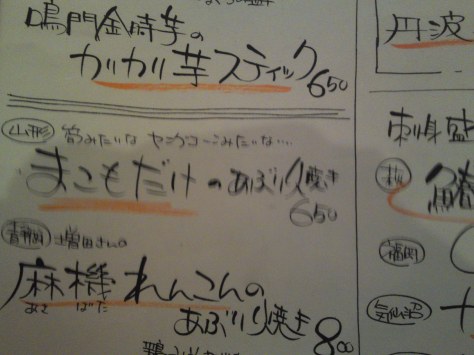 鳴門金時芋の
カリカリ芋スティック 650
山形 筍みたいな ヤングコーンみたいな…
まこもだけのあぶり焼き
650
静岡 増田さんの
麻機れんこんの
あさ ばた
あぶり焼き 800
丹波
刺身盛
鰆
福岡
気仙沼